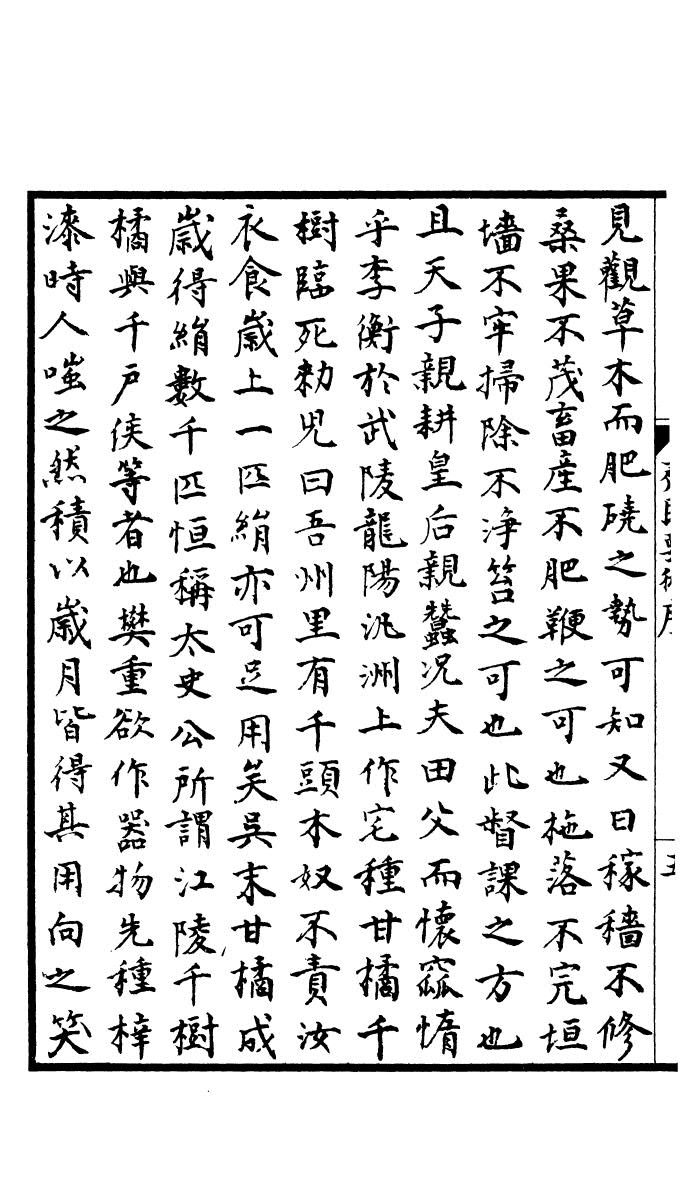 見觀草木而肥磽之勢可知又曰稼穡不修
桑果不茂畜産不肥鞭之可也杝落不完垣
墻不牢掃除不淨笞之可也此督課之方也
且天子親耕皇后親蠶况夫田父而懷窳惰
乎李衡於武陵龍陽汎洲上作宅種甘橘千
樹臨死勑兒曰吾州里有千頭木奴不責汝
衣食歲上一匹絹亦可足用矣吳末甘橘成
歲得絹數千匹恒稱太史公所謂江陵千樹
橘與千戸侯等者也樊重欲作器物先種梓
漆時人嗤之然積以歲月皆得其用向之笑